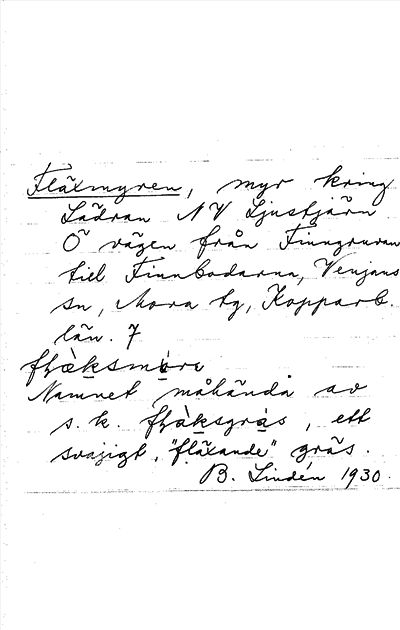 Fläxmyren, myr kring
Lädran NV Ljustjärn
Ö vägen från Finngruvan
till Finnbodarna, Venjans
sn, Mora tg, Kopparb.
län. 7
Namnet måhända av
s.k. fḷàksgràs, ett
svajigt, "fläxande" gräs.
B. Lindén 1930.